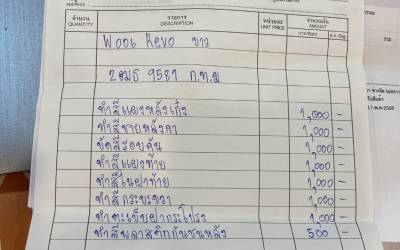 ADDRESS
จำนวน รายการ หน่วยละ จำนวนเงิน
QUANTITY DESCRIPTION UNIT PRICE AMOUNT
Revo ขาว
9581 ก.ท.ม
ทำสีแผงหลังเก๋ง 1,000 -
ทำสีชายหลังคา 1,000 -
ขัดสีรอบคัน 1,000 -
ทำสีแผงท้าย 1,000 -
ทำสีในฝาท้าย 1,000 -
ทำสีกระบะขวา 1,000 -
ทำตะเข็บฝากระโปรง 1,000 -
ทำสีพลาสติกกันชนหลัง 500 -